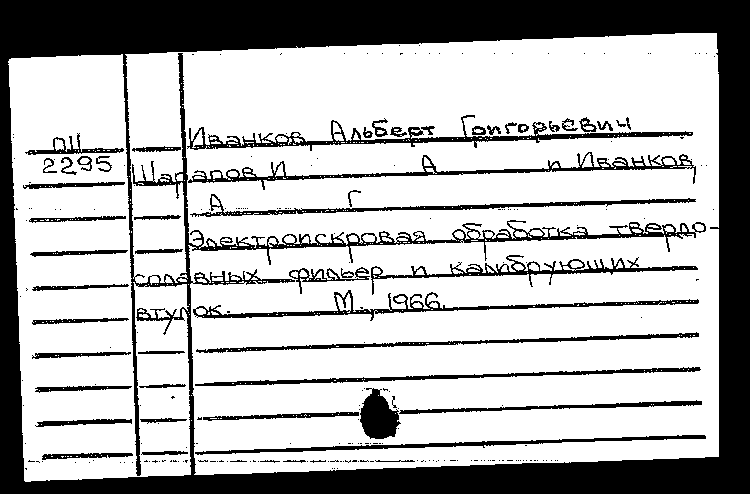 Иванков, Альберт Григорьевич
П11
2295
Шарапов, И А и Иванков,
А Г
Электроискровая обработка твердо-
сплавных фильер и калибрующих
втулок. М., 1966.